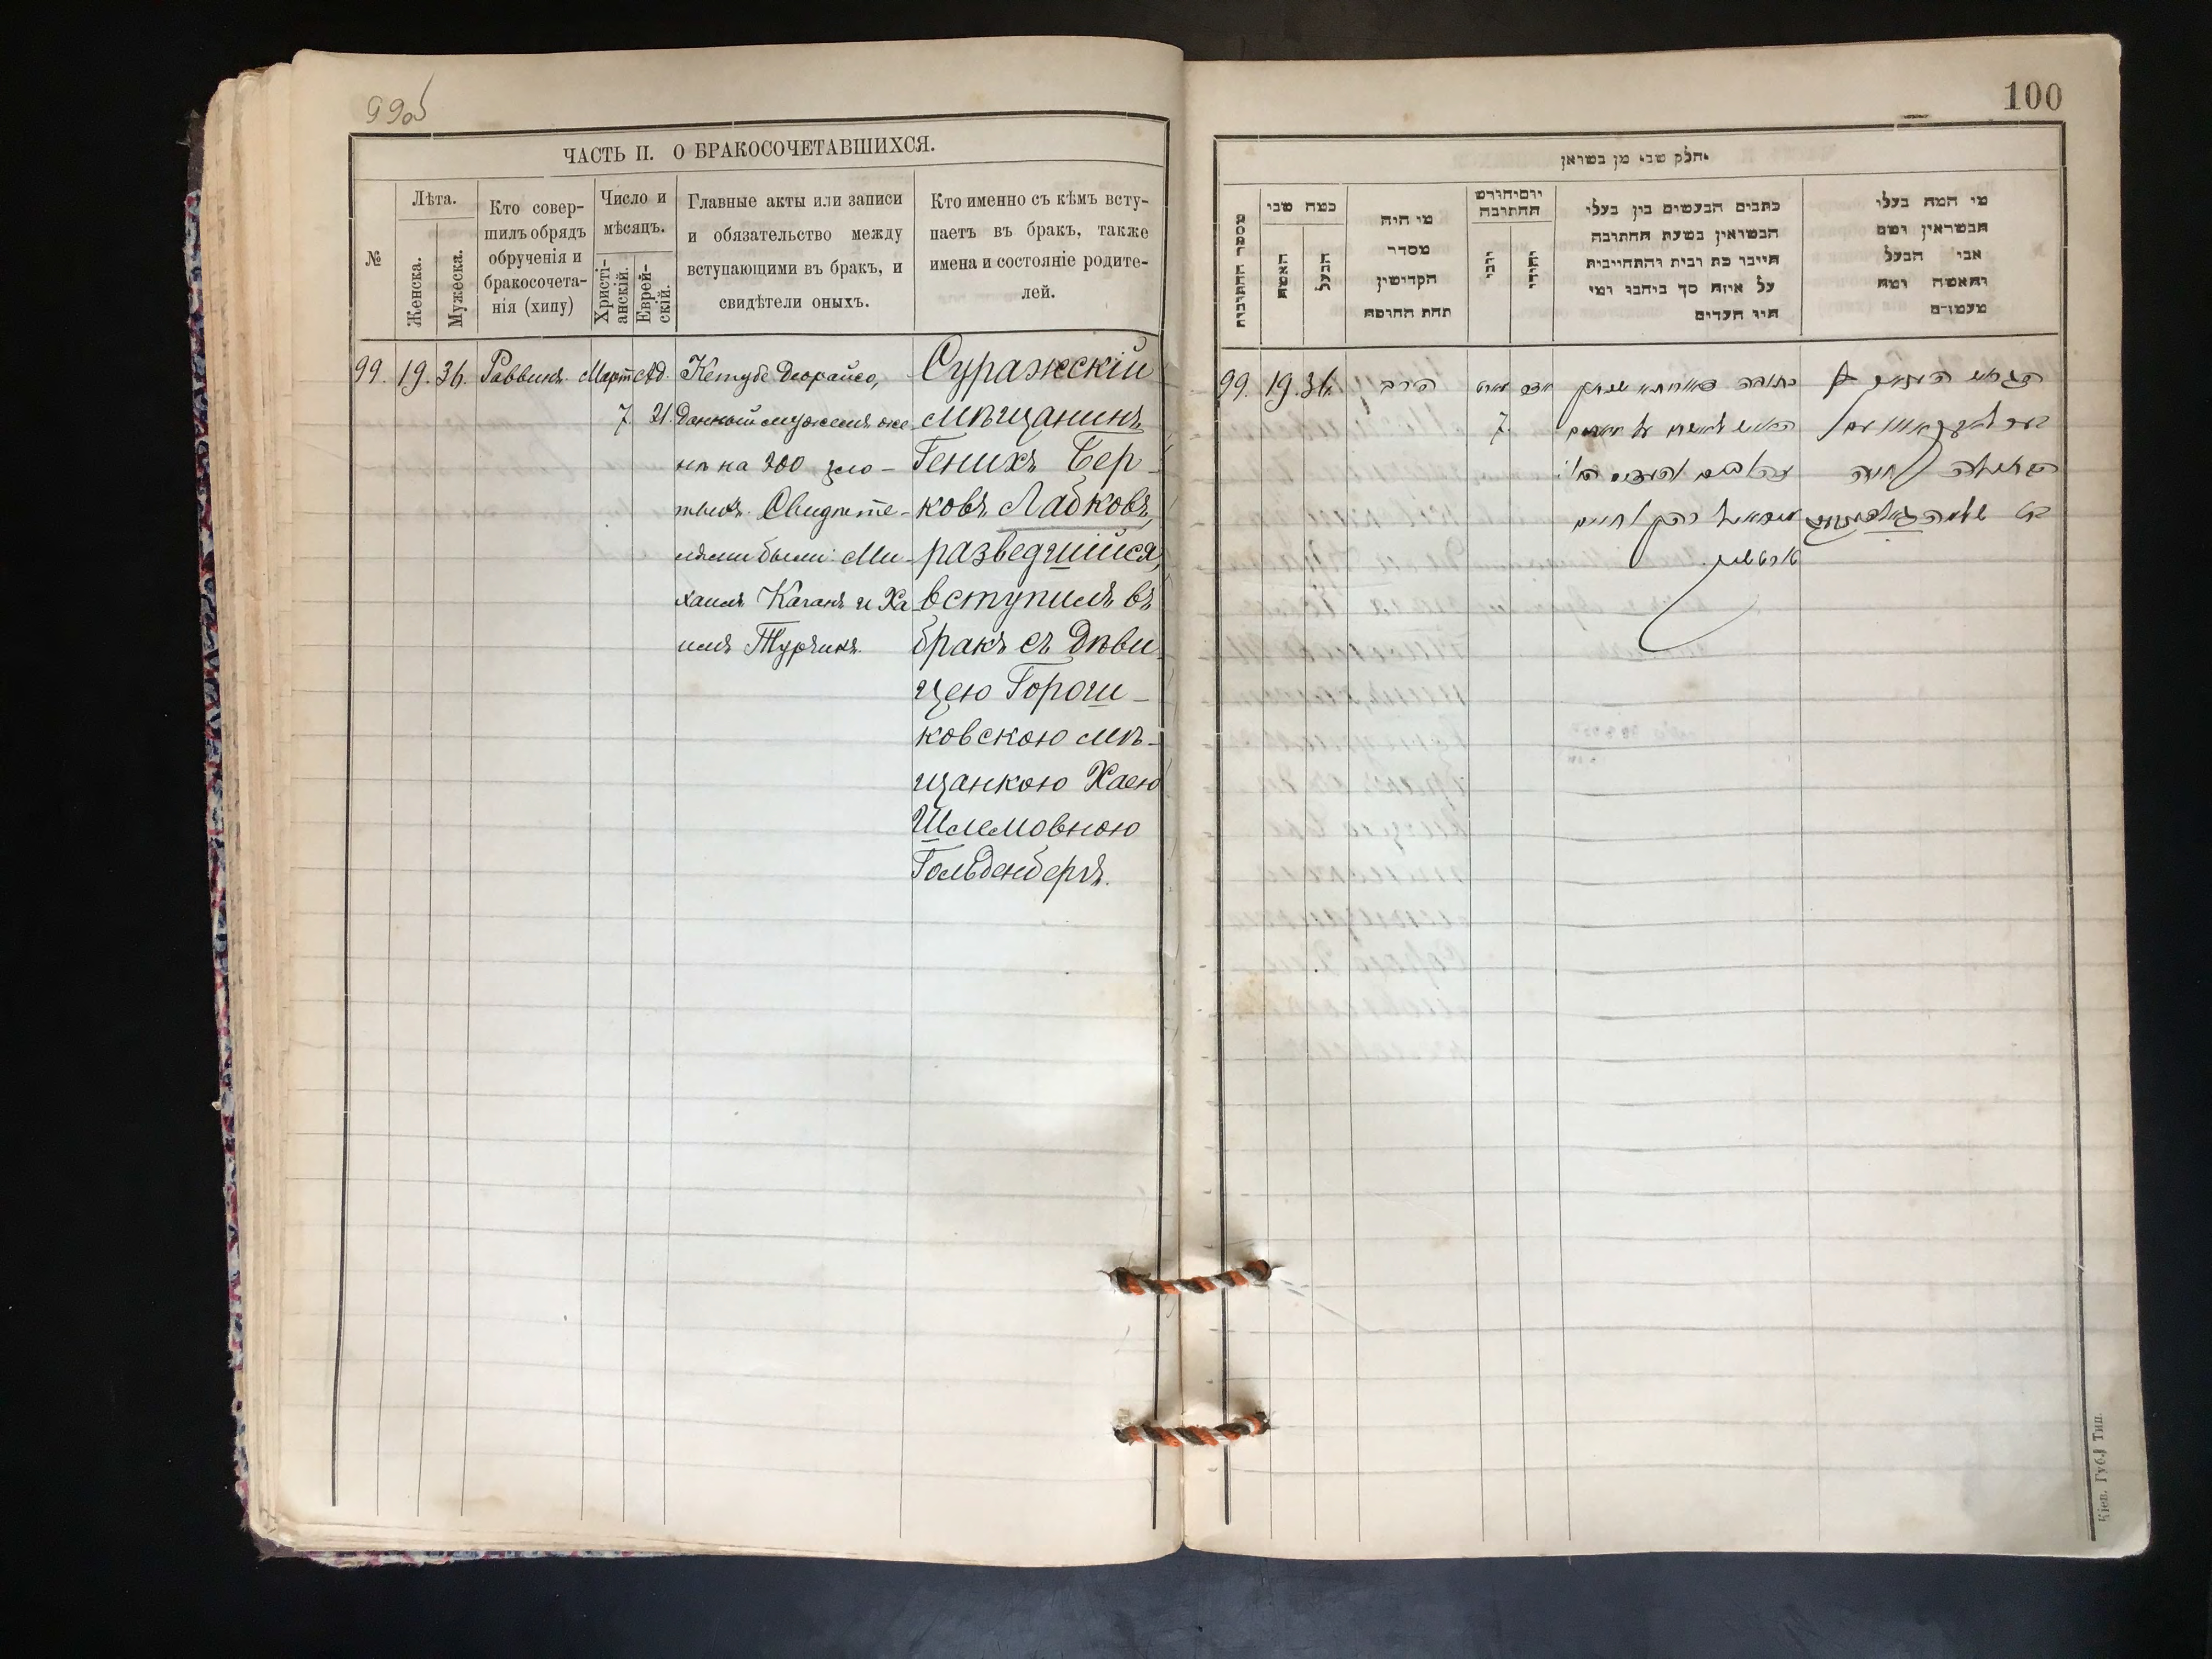 99об
ЧАСТЬ II. О БРАКОСОЧЕТАВШИХСЯ.
№
Лѣта.
Женска.
Мужеска.
Кто совер-
шилъ обрядъ
обрученія и
бракосочета-
нія (хипу)
Число и
мѣсяцъ.
Христі-
анскій.
Еврей-
скій.
Главные акты или записи
и обязательство между
вступающими въ бракъ, и
свидѣтели оныхъ.
Кто именно съ кѣмъ всту-
паетъ въ бракъ, также
имена и состояніе родите-
лей.
99. 19. 36. Раввинъ. Март Ад.
7. 21.
Кетубе Деорайсо,
данной мужемъ же-
нѣ на 200 зло-
тыхъ. Свидѣте-
лями были: Ми-
хаилъ Каганъ и Ха
имъ Турчинъ.
Суражскій
мѣщанинъ
Генихъ Бер-
ковъ Лабковъ,
разведшійся,
вступилъ въ
бракъ съ дѣви
цею Горош-
ковскою мѣ-
щанкою Хаею
Шлемовною
Гольденбергъ.
100
חלק שני מן נשואין
מספר החתונות
כמה שני
האשה
הבעל
מי היה
מסדר
הקדושין
תחת החופה
יום וחודש
החתונה
יוני
יהודי
כתבים הנעשים בין בעלי
הנשואין בשעת החתונה
חייבו בת ובית והתחייבות
על איזה סך כיחבו ומי
היו העדים
מי המה בעלי
הנשואין ושם
אבי הבעל
והאשה ומה
מעמדם
99. 19. 36. הרב
7.
Кіев. Губ. Тип.